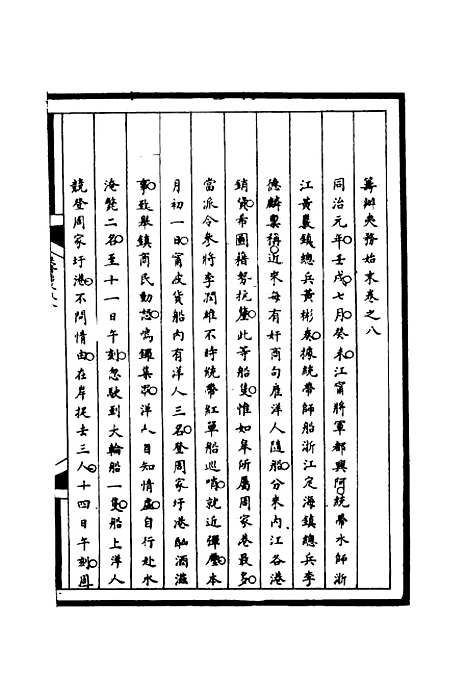 籌辦夷務始末卷之八
同治元年壬戌七月癸未江甯將軍都興阿統帶水師浙
江黃巖鎮總兵黃彬奏據統帶師船浙江定海鎮總兵李
德麟稟稱近來每有奸商句雇洋人隨船分來內江各港
銷貨希圖藉勢抗釐此等船隻惟如皋所屬周家港最多
當派令參將李潤雄不時統帶紅單船巡哨就近彈壓本
月初一日甯皮貨船內有洋人三名登周家圩港酗酒滋
事致舉鎮商民動怒鳴鑼集眾洋人自知情虛自行赴水
淹斃二名至十一日午刻忽駛到大輪船一隻船上洋人
競登周家圩港不問情由在岸捉去三人十四日午刻圓